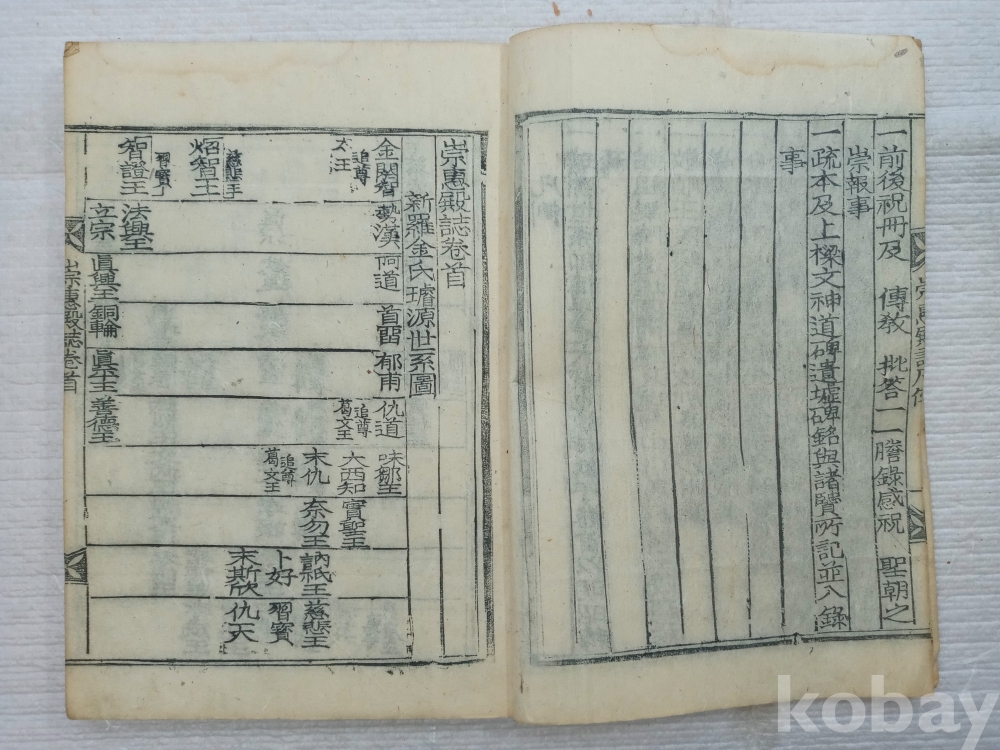 一前後祝冊及 傳敎 批答一一謄錄感祝 聖朝之
崇報事
一疏本及上樑文神道碑遺墟碑銘與諸賢所記並入錄
事
崇惠殿誌卷首
新羅金氏璿源世系圖
金閼智
追尊
大王
勢漢
阿道
首留
郁甫
仇道
追尊
葛文王
味鄒王
大西知
末仇
追尊
葛文王
實聖王
奈勿王
訥祗王
卜好
末斯欣
慈悲王
習寶
仇天
慈悲王
炤智王
習寶子
智證王
法興王
立宗
眞興王
銅輪
眞平王
善德王
崇惠殿誌卷首
kobay